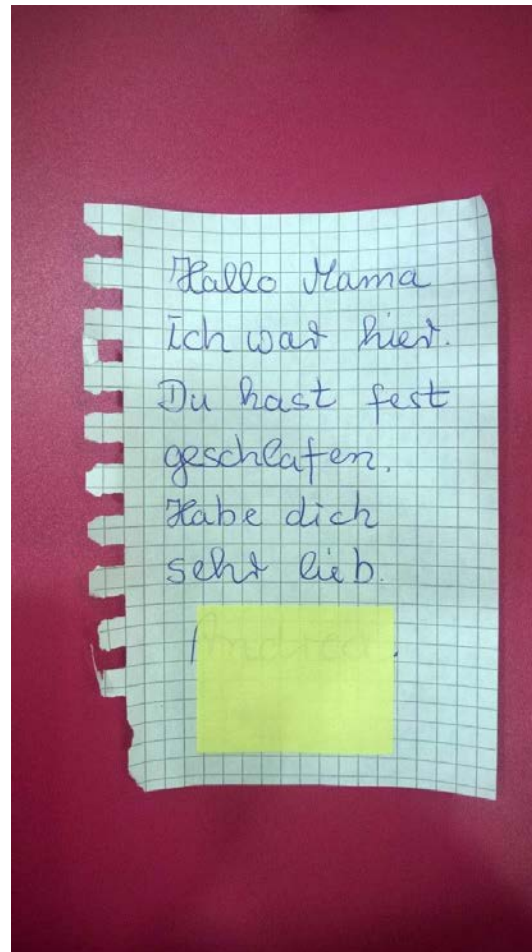 Hallo Mama
Ich war hier.
Du hast fest
geschlafen.
Habe dich
sehr lieb.